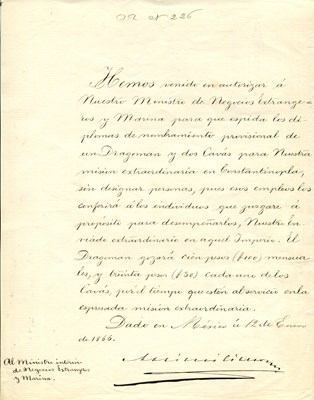 Nº 226
Hemos venido en autorizar á
Nuestro Ministro de Negocios Estrange-
ros y Marina para que espida los di-
plomas de nombramiento provisional de
un Dragoman y dos Cavás para Nuestra
mision extraordinaria en Constantinopla,
sin designar personas, pues esos empleos los
conferirá á los individuos que juzgare á
propósito para desempeñarlos, Nuestro En-
viado extraordinario en aquel Imperio. El
Dragoman gozará cien pesos ($100) mensua-
les, y treinta pesos ($30) cada uno de los
Cavás, por el tiempo que estén al servicio en la
espresada mision extraordinaria.
Dado en México á 12 de Enero
de 1866.
Maximiliano
Al Ministro interino
de Negocios Estrangs
y Marina.